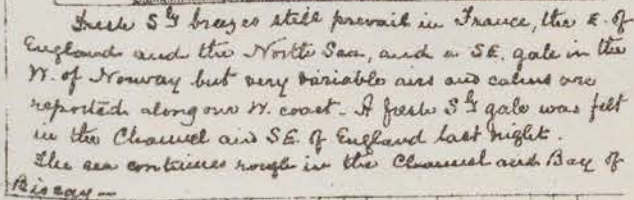 Fresh S.ly breezes still prevail in France, the E. of
England and the North Sea, and a SE. gale in the
W. of Norway but very variable airs and calms are
reported along our W. coast. A fresh S.ly gale was felt
in the Channel and SE. of England last night.
The sea continues rough in the Channel and Bay of
Biscay —